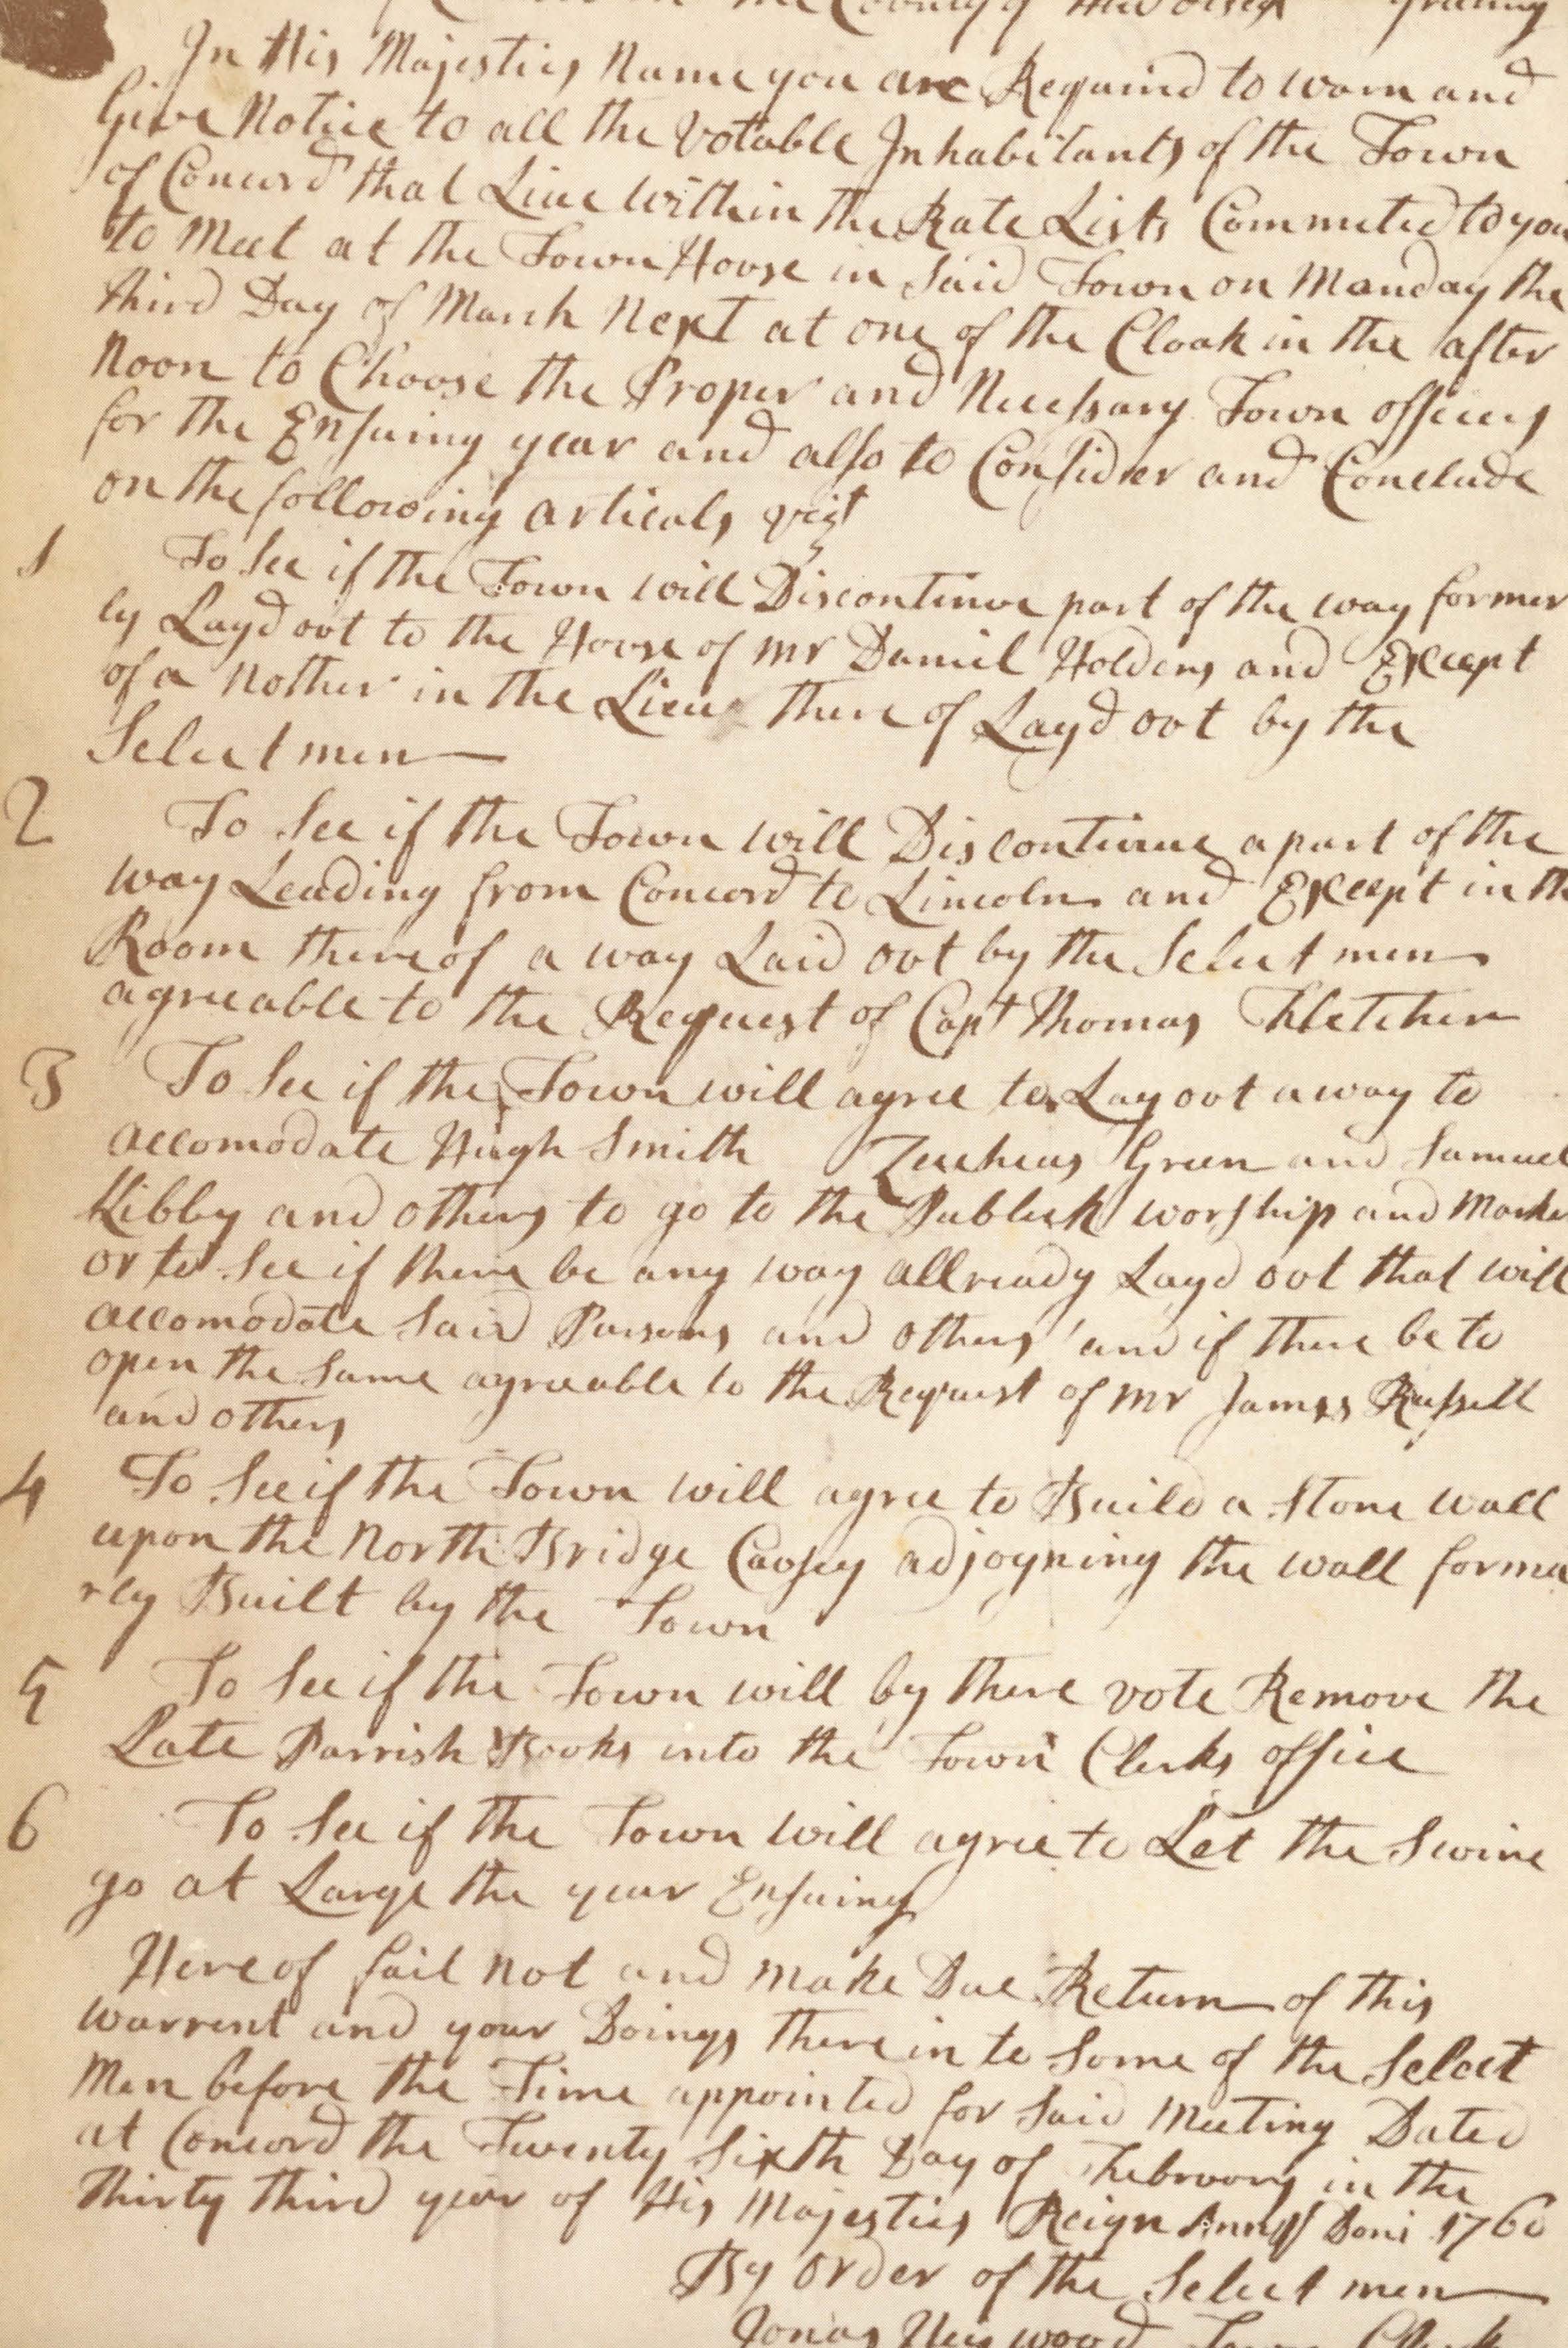 in the County of Middlesex Greeting
In His Majesties Name you are Required to warn and
Give Notice to all the Votable Inhabitants of the Town
of Concord that Live within the Rate Lists Commited to you
to Meet at the Town House in Said Town on Manday the
third Day of March Next at one of the Cloak in the after
Noon to Choose the Proper and Necessary Town officers
for the Ensuing year and also to Consider and Conclude
on the following articals vizt
1 To See if the Town will Discontinue part of the way former
ly Layd out to the House of Mr Daniel Holdens and Except
of a nother in the Lieu there of Layd out by the
Select men
2 To See if the Town will Discontinue a part of the
way Leading from Concord to Lincoln and Except in th
Room thereof a way Laid out by the Select men
agreeable to the Request of Capt Thomas Fletcher
3 To See if the Town will agree to Lay out a way to
accomodate Hugh Smith Zecheas Green and Samuel
Kibby and others to go to the Publick worship and Marke
or to See if there be any way allready Layd out that will
accomodate Said Parsons and others and if there be to
open the Same agreeable to the Request of Mr James Russell
and others
4 To See if the Town will agree to Build a Stone wall
upon the North Bridge Causey adjoyning the wall forme
rly Built by the Town
5 To See if the Town will by there vote Remove the
Late Parrish Books into the Town Clerks office
6 To See if the Town will agree to Let the Swine
go at Large the year Ensuing
Hereof fail not and make Due Return of this
warrent and your Doings there in to Some of the Select
Men before the Time appointed for Said Meeting Dated
at Concord the Twenty Sixth Day of February in the
thirty third year of His Majesties Reign Domi 1760
By order of the Select men
Jonas Heywood Town Clerk